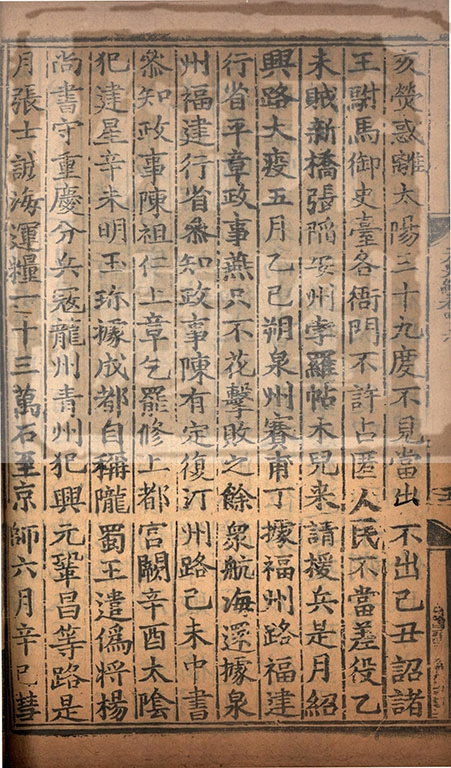 亥熒惑離太陽三十九度不見當出不出己丑詔諸
王駙馬御史臺各衙門不許占匿人民不當差役乙
未賊新橋張陷安州孛羅帖木兒来請援兵是月紹
興路大疫五月乙巳朔泉州賽甫丁據福州路福建
行省平章政事燕只不花擊敗之餘衆航海還據泉
州福建行省叅知政事陳有定復汀州路己未中書
叅知政事陳祖仁上章乞罷修上都宮闕辛酉太陰
犯建星辛未明玉珍據成都自稱隴蜀王遣僞將楊
尚書守重慶分兵寇龍州青州犯興元鞏昌等路是
月張士誠海運糧一十三萬石至京師六月辛巳彗